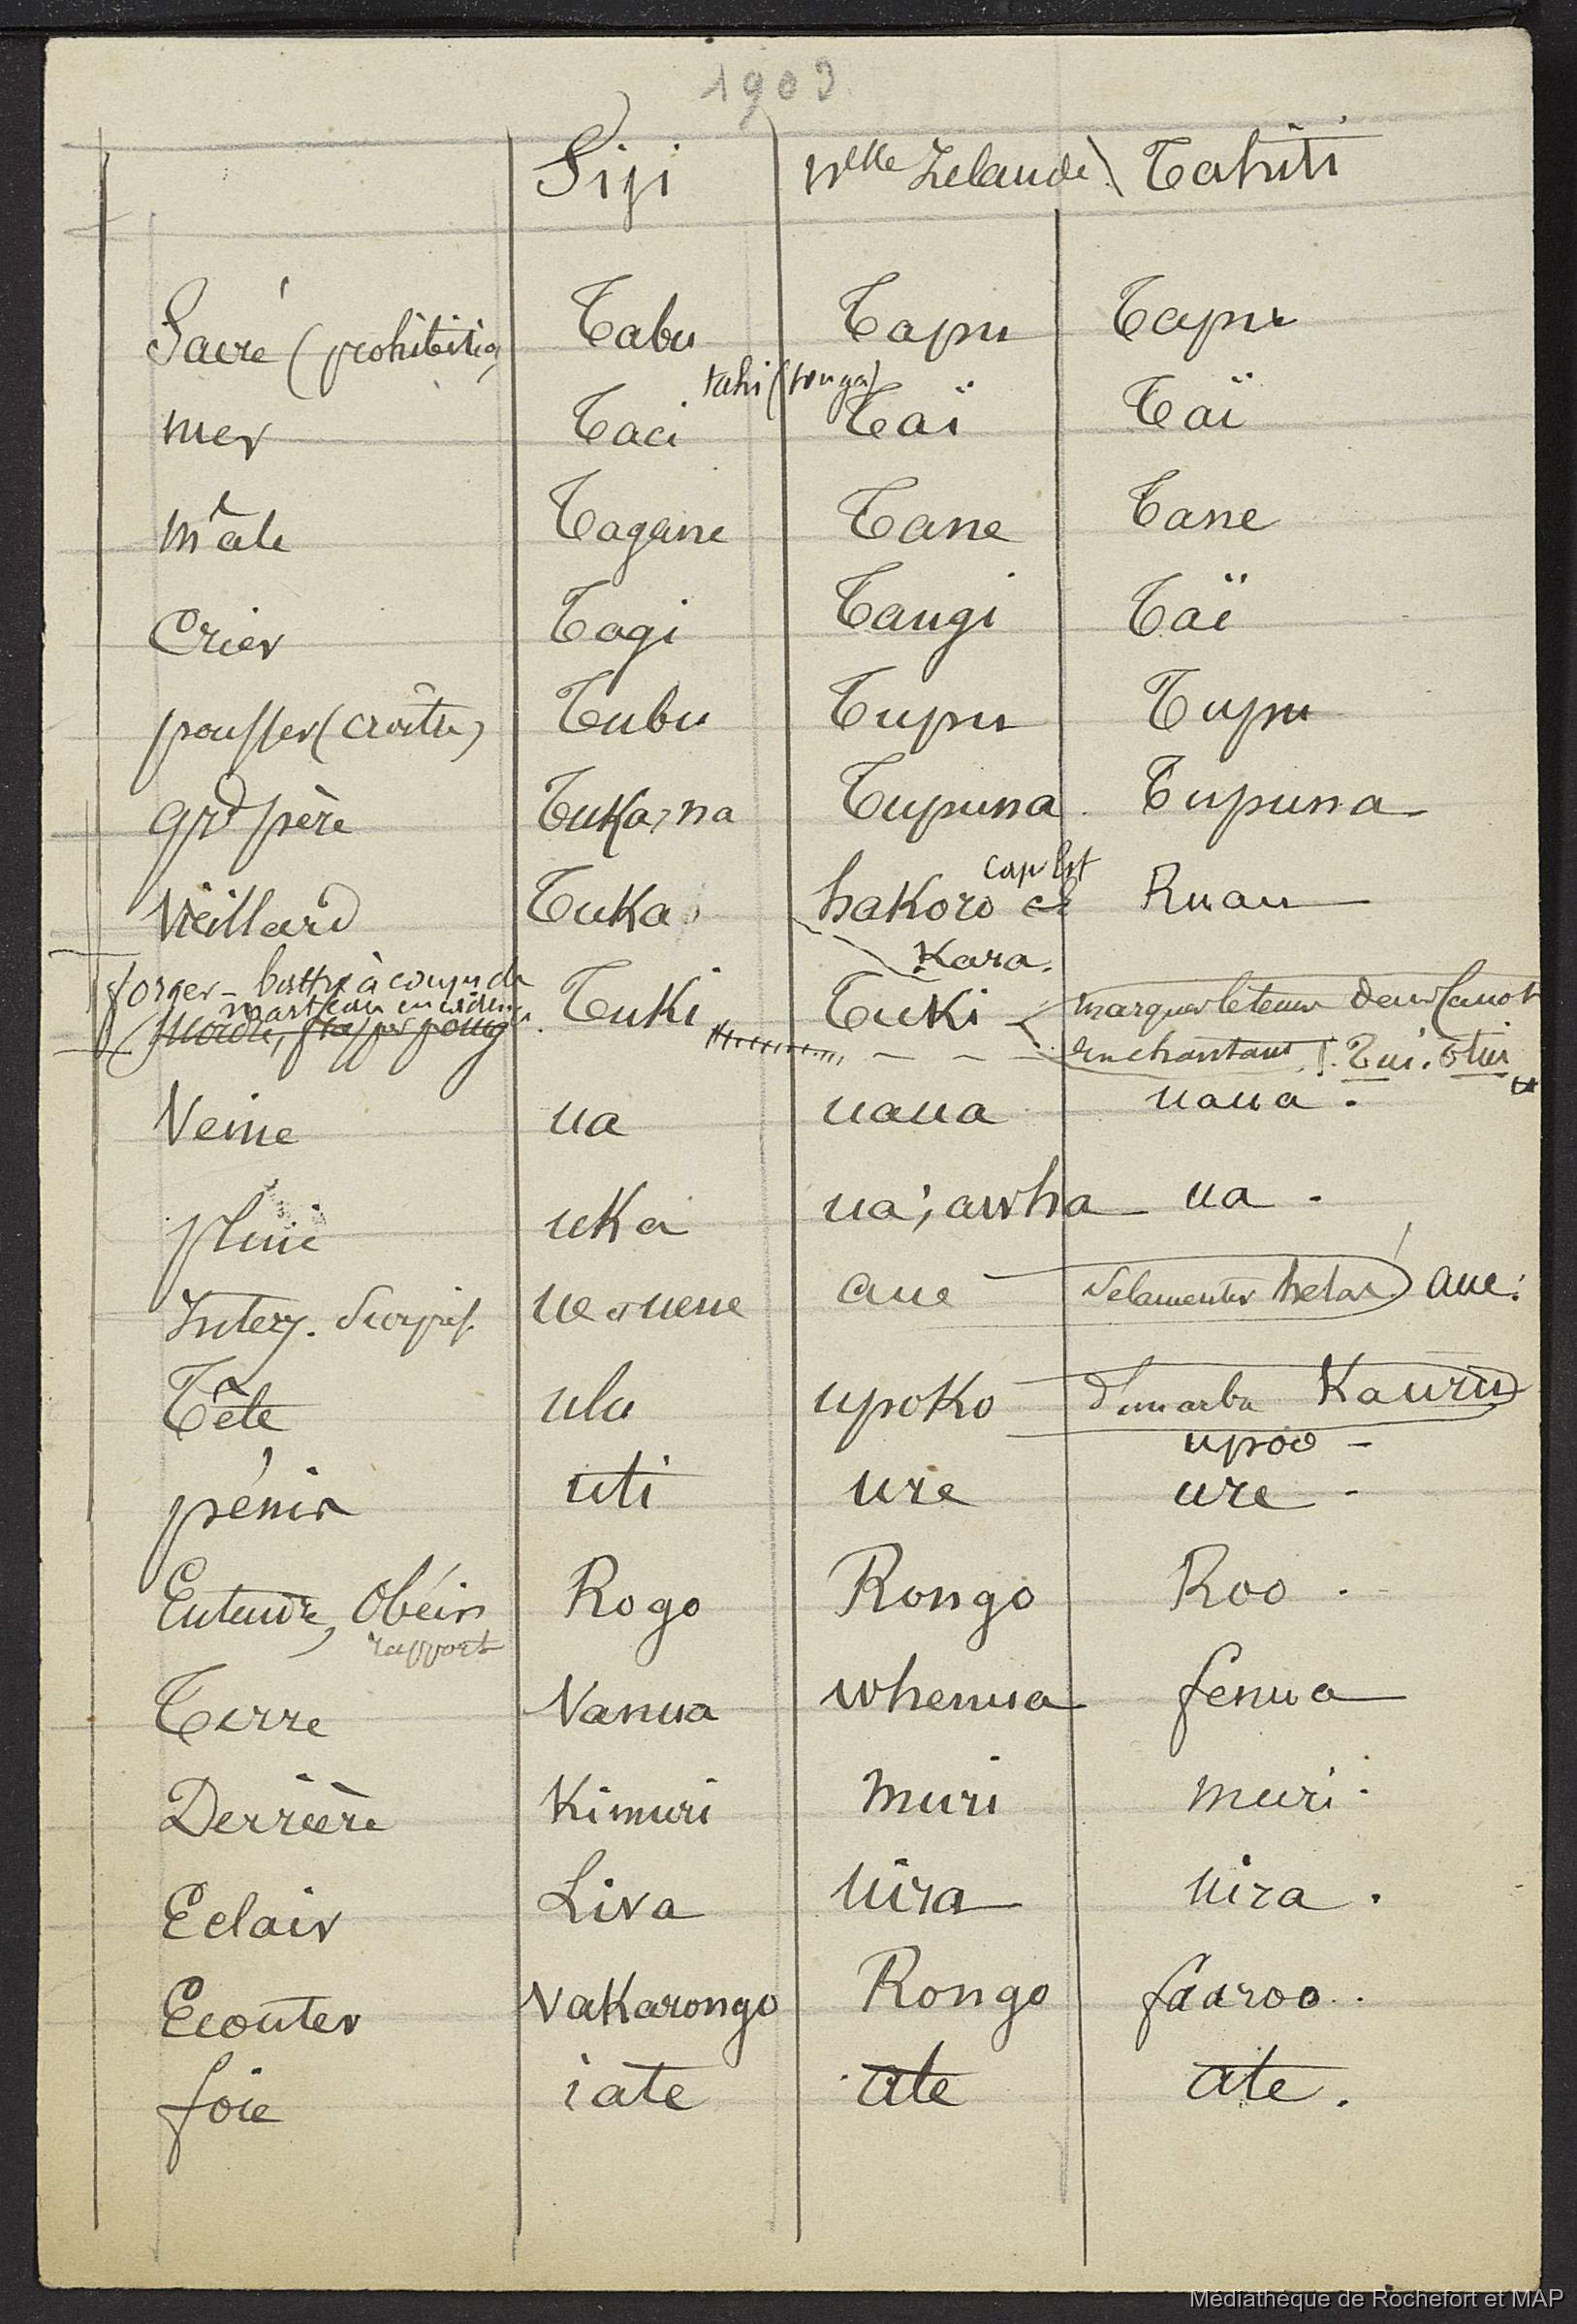 1909
Fiji Nlle Zelande Tahiti
Sacré (prohibitio Tabu Tapu Tapu
tahi (tonga)
mer Taci Taï Taï
mâle Tagane Tane Tane
Crier Tagi Tangi Taï
pousser (croître) Tubu Tupu Tupu
grd père Tuka, na Tupuna Tupuna
Cap Est
Vieillard Tuka haKoro et Ruau
Kara.
forger - battre à coups de
marteau en
Tuki Tuki marquer le temps dans canot
en chantant. Tui. Otui
Veine ua uaua uaua.
pluie uka ua; awha ua.
Interj. Surpris. ue ueue aue se lamenter helas! aue!
Tête ulu upoko Kauru
upoo -
pénis uti ure ure -
Entendre, Obéir Rogo Rongo Roo.
rapport
Terre Vanua whenua fenua
Derrière Kimuri muri muri.
Eclair Liva Uira Uira.
Ecouter Vakarongo Rongo faaroo.
foie iate ate ate.
Médiathèque de Rochefort et MAP